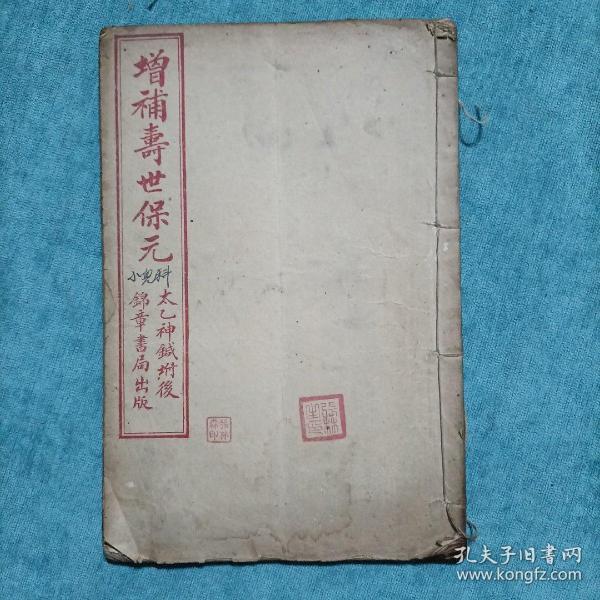 增補壽世保元
小兒科
太乙神鍼坿後
錦章書局出版
孔夫子旧書网
www.kongfz.com